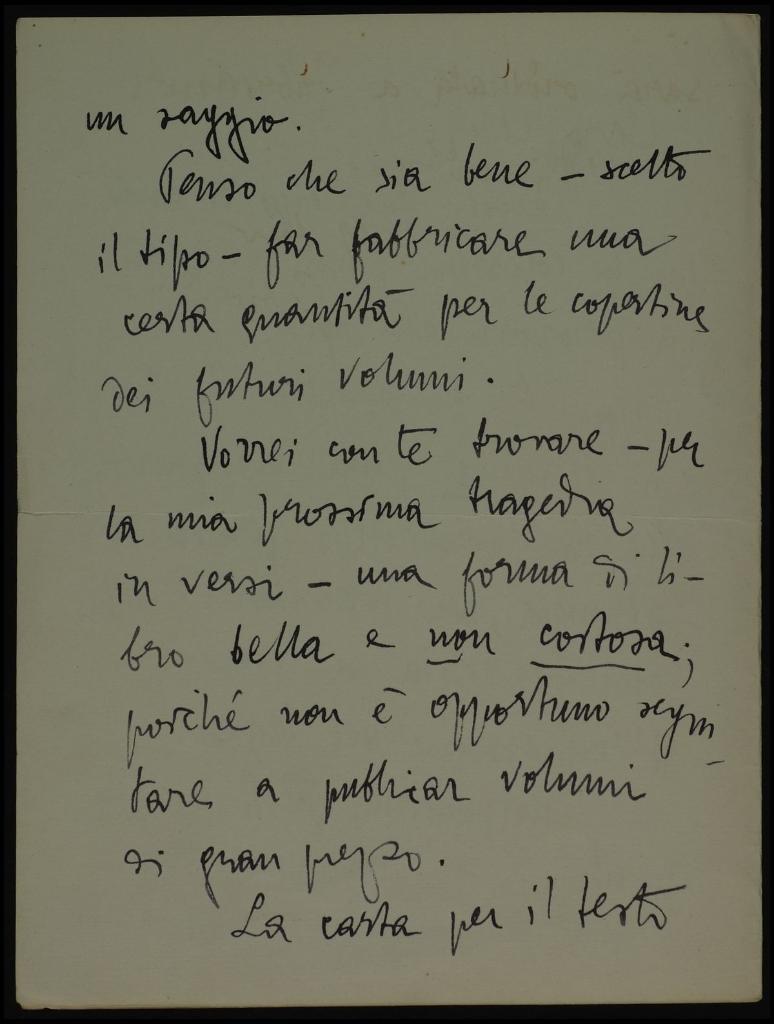 un saggio.
Penso che sia bene – scelto
il tipo – far fabbricare una
certa quantità per le copertine
dei futuri volumi.
Vorrei con te trovare – per
la mia prossima tragedia
in versi – una forma di li-
bro bella e non costosa;
poiché non è opportuno segui-
tare a pubblicar volumi
di gran prezzo.
La carta per il testo